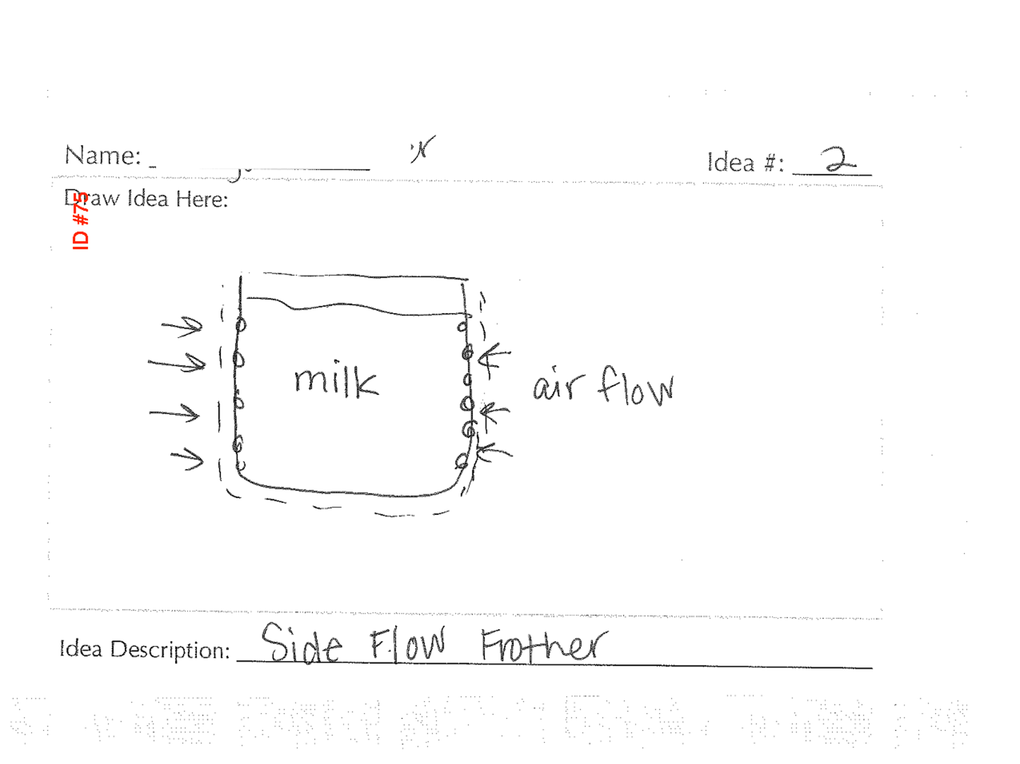 Name:
Idea #: 2
ID #75
Draw Idea Here:
milk
air flow
Idea Description: Side Flow Frother